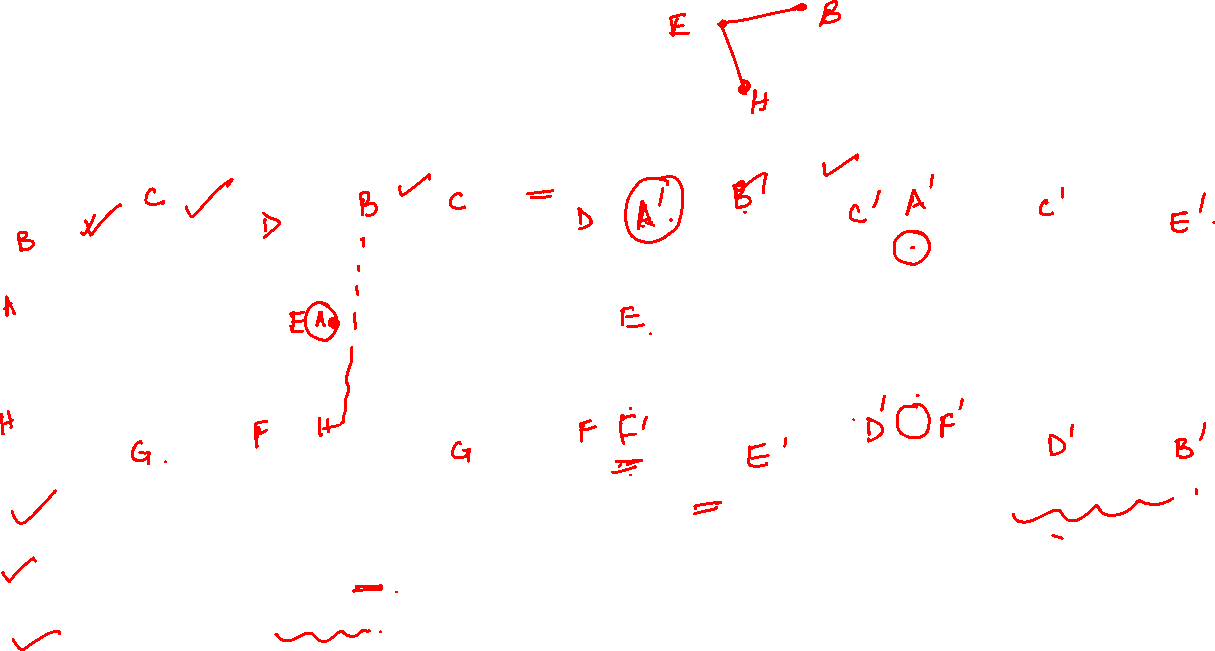 E B
H
B C D B C = D A' B' C' A' C' E'
A E A E
H G F H G F F' E' D' F' D' B'
=